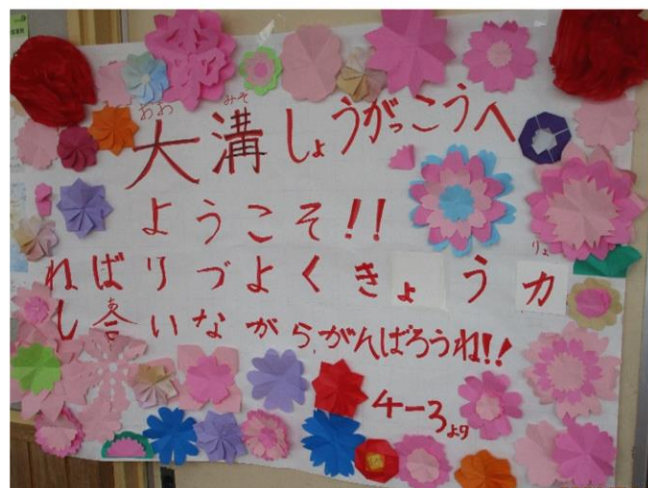 おお みぞ
大溝しょうがっこうへ
ようこそ!!
りょ
ねばりづよくきょう力
あ
し合いながらがんばろうね!!
4-3より